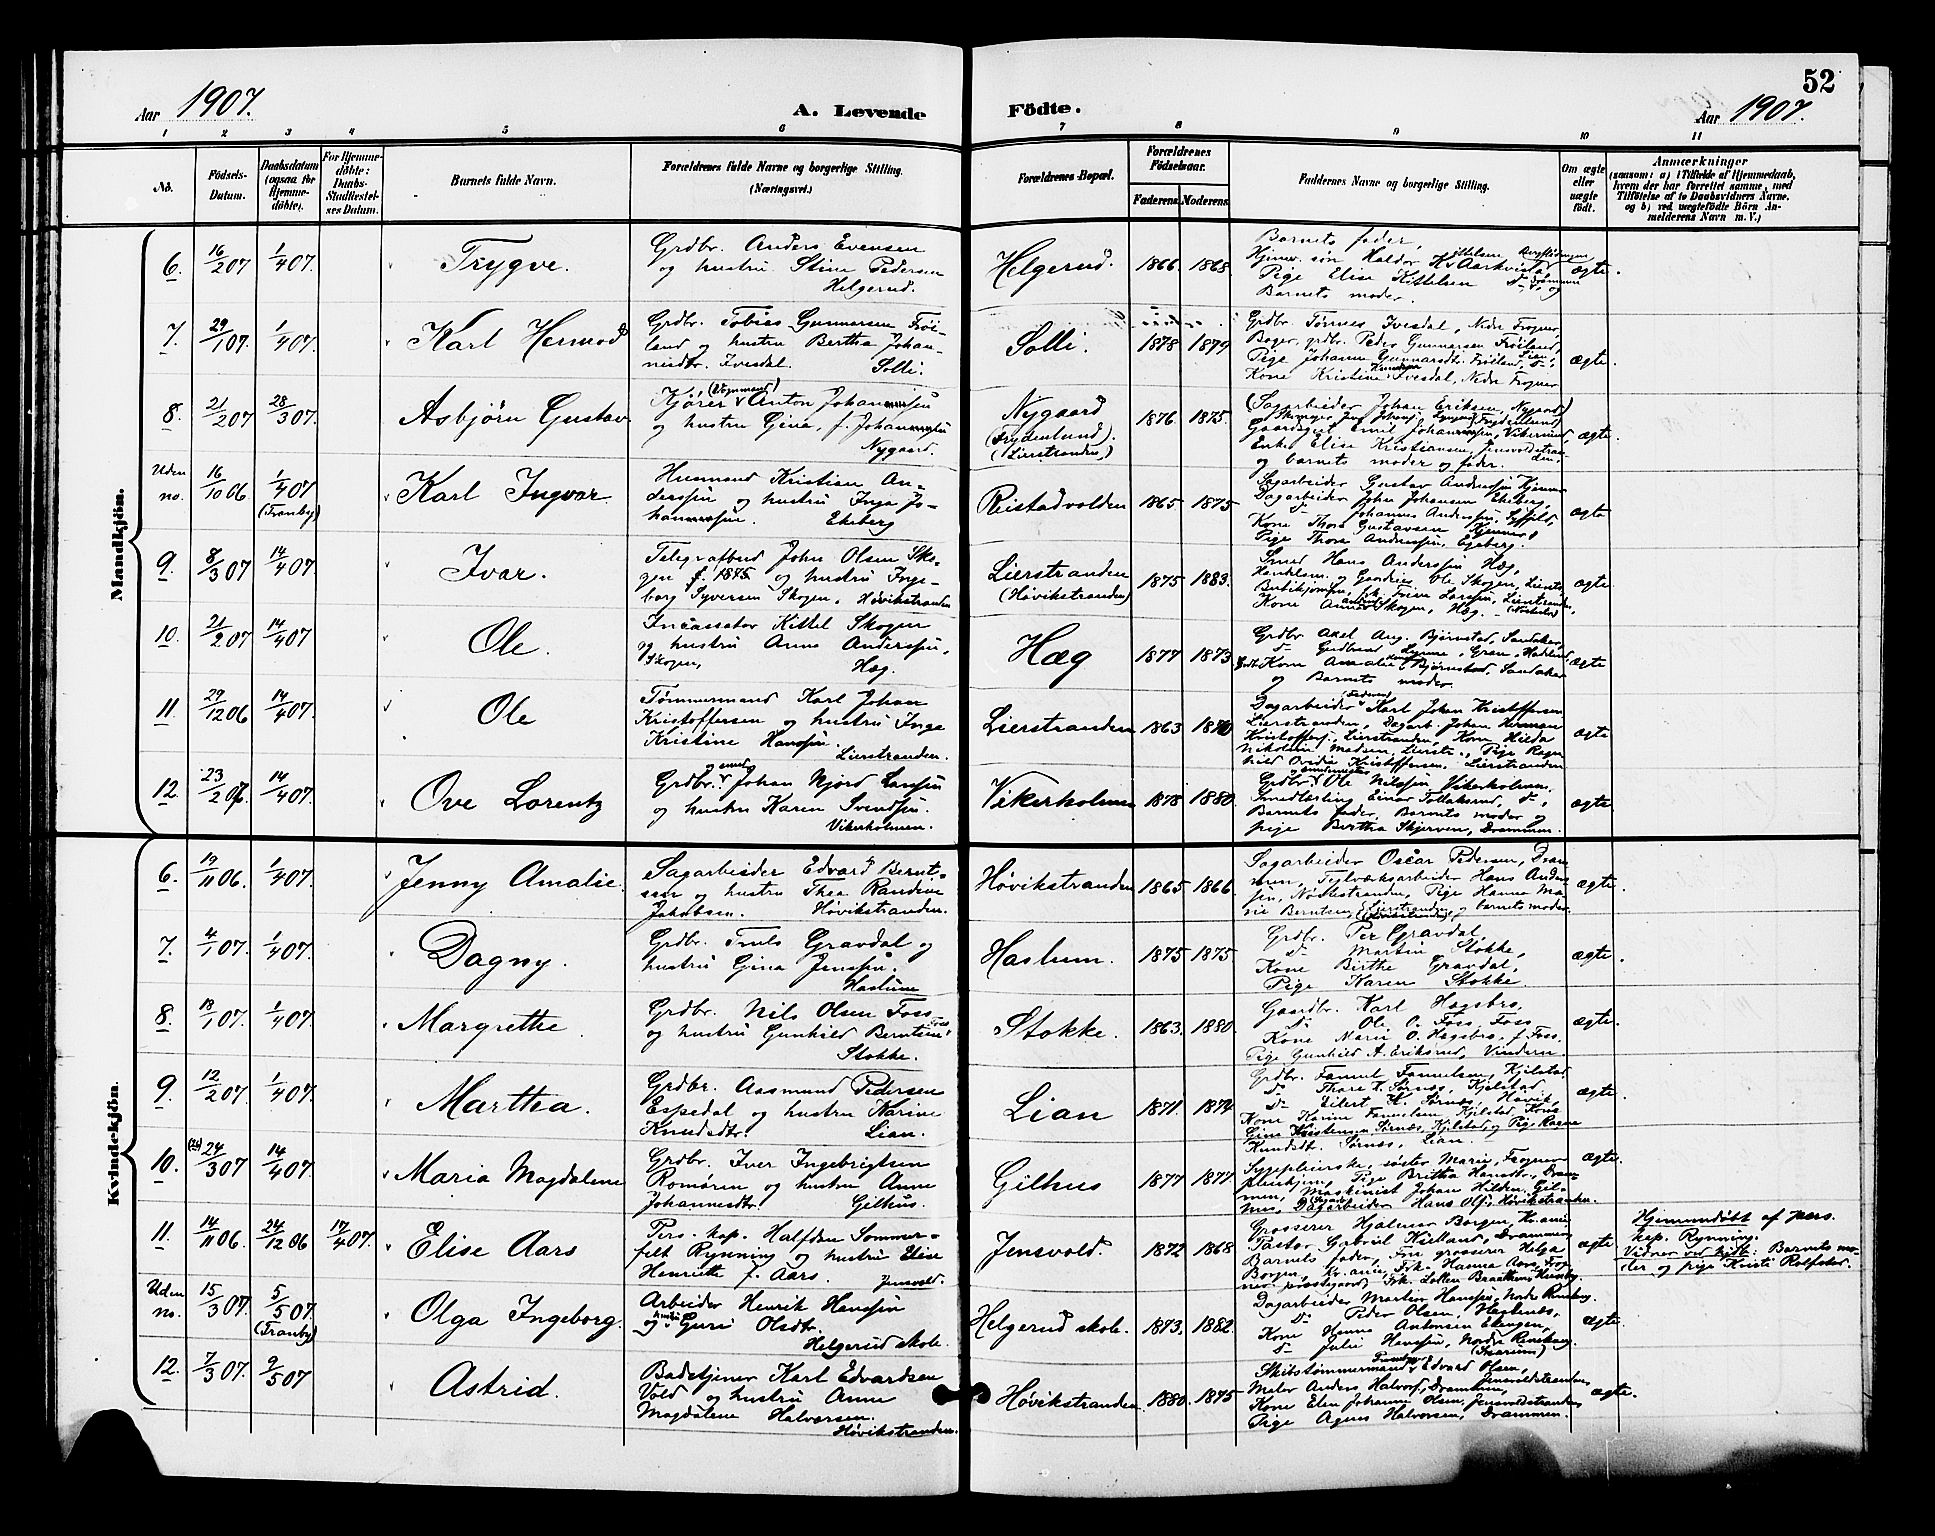 52
Aar 1907. A. Levende Födte. Aar 1907.
1 2 3 4 5 6 7 8 9 10 11
No. Födsels-Datum. Daabsdatum (ogsaa for Hjemmedöbte). For Hjemmedöbte: Daabs-Stadfæstelses Datum. Barnets fulde Navn. Forældrenes fulde Navne og borgerlige Stilling. (Næringsvei.) Forældrenes Bopæl. Forældrenes Födselsaar. Faderens. Moderens. Faddernes Navne og borgerlige Stilling. Om ægte eller uægte födt. Anmærkninger (saasom: a) i Tilfælde af Hjemmedaab, hvem der har forrettet samme, med Tilföielse af to Daabsvidners Navne. og b) ved uægtefödte Börn Anmelderens Navn m. V.)
Mandkjön.
6. 16/2 07 1/4 07. Trygve. Grdbr. Anders Evensen
og hustru Stine Pedersen
Helgerud. Helgerud. 1866. 1868. Barnets fader,
Pige Elise Kittelsen
Barnets moder. ægte
7. 29/1 07. 1/4 07. Karl Hermod Grdbr. Tobias Gunnarsen Frøi-
land og hustru Bertha Johan-
nesdtr. Ivesdal. Solli. Solli. 1878 1879 Grdbr. Tønnes Ivesdal, Nedre Frogner
grdbr. Peder Gunnarsen Frøiland,
Pige Johanne Gunnarsdt. Frøiland,
Kone Kristine Ivesdal, Nedre Frogner ægte.
8. 21/2 07 28/3 07. Asbjörn Gustav Kjörer (Vognmand) Anton Johannessen
og hustru Gina, f. Johannessen
Nygaard. Nygaard
(Frydenlund).
(Lierstranden) 1876. 1875. (Sagarbeider Johan Eriksen, Nygaard)
Gaardsgut Emil Johannessen, Vikerund,
Enke Elise Kristiansen,
og barnets moder og fader. ægte.
Uden no. 16/10 06 1/4 07 (Tranby) Karl Ingvar. Husmand Kristian An-
derssen og hustru Inga Jo-
hannessen. Ekeberg Reistadvolden 1865 1875 Sagarbeider Gustav Anderssen
Dagarbeider Johan Johansen Ekeberg,
Johannes Anderssen,
Kone Thora Gustavsen
Pige Thora Anderssen, Egeberg. ægte
9. 8/3 07 14/4 07. Ivar. Telegrafbud John Olsen Sko-
gen f. 1875 og hustru Inge-
borg Syversen Skogen, Høvikstranden Lierstranden
(Høvikstranden) 1875 1883. Smed Hans Anderssen Hæg,
Ole Skogen,
Kone Anna Skogen, Hæg. ægte
10. 21/2 07 14/4 07 Ole. Incassator Kittel Skogen
og hustru Anna Anderssen,
Skogen, Hæg. Hæg 1877 1873 Grdbr Axel Aug. Bjørnstad, Sandaker
Kone Amalie Bjørnstad, Sandaker
og Barnets moder. ægte
11. 29/12 06 14/4 07. Ole Tømmermand Karl Johan
Kristoffersen og hustru Inga
Kristine Hanssen.
Lierstranden. Lierstranden 1863 1870 Dagarbeider Karl Johan Kristoffersen
Lierstranden, Dagarb. Johan Herman
Kristoffers., Lierstranden, Kone Hilda
Nikoline Madsen, Pige Ragn-
hild Ovidie Kristoffersen, Lierstranden ægte
12. 23/2 07. 14/4 07. Ove Lorentz Grdbr. og smed Johan Njord Larssen
og hustru Karen Svendsen.
Vikerholmen. Vikerholmen 1878 1880. Grdbr. Ole Nilssen Vikerholmen,
Smedlærling Einar Tollaksrud,
Barnets fader, Barnets moder og
pige Bertha Skjerven, Drammen. ægte
Kvindekjön.
6. 19/11 06. 1/4 07. Jenny Amalie. Sagarbeider Edvard Bernt-
sen og hustru Thea Randine
Jakobsen. Høvikstranden. Høvikstranden 1865 1866. Sagarbeider Oscar Pedersen, Dram-
men, Teglværksarbeider Hans Anders-
sen, Nøstestranden, Pige Hanna Ma-
rie Berntsen, Lierstranden og barnets moder. ægte.
7. 4/1 07. 1/4 07. Dagny. Grdbr. Truls Gravdal og
hustru Gina Jenssen.
Haslum Haslum. 1875 1875. Grdbr. Per Gravdal,
Do Martin Stokke,
Kone Birthe Gravdal,
Pige Karen Stokke. ægte.
8. 13/1 07. 1/4 07. Margrethe. Grdbr. Nils Olsen Foss
og hustru Gunhild Berntine
Stokke. Stokke. 1863. 1880. Gaardbr. Karl Hægsbro,
Do Ole O. Foss, Foss
Kone Marie O. Hægsbro, f. Foss.
Pige Gunhild A. Eriksrud, Vinderen ægte.
9. 12/2 07. 1/4 07. Martha. Grdbr. Aasmund Pedersen
Espedal og hustru Karine
Knudsdtr. Lian. Lian 1871. 1874. Grdbr. Samuel Samuelsen, Kjelstad
Do Thore K. Sørnæs, Kjelstad,
Do Eilert K. Sørnæs, Høvik,
Kone Karine Samuelsen, Kjelstad, Kone
Gina Kristensen Sørnæs, Kjelstad, og Pige Ragna
Knudsdt. Sørnæs, Lian. ægte.
10. 24/3 07 14/4 07. Maria Magdalene Grdbr. Iver Ingebrigtsen
Romören og hustru Anne
Johannesdtr. Gilhus. Gilhus 1877 1877. Sygepleierske, søster Marie, Frogner
pleiehjem, Pige Britha Hansdtr., Dram-
men, Maskinist Johan Hilden, Gil-
hus, Dagarbeider Hans Ols., Høvikstranden. ægte.
11. 14/11 06. 24/12 06 17/4 07. Elise Aars Pers. kap. Halfdan Sommer-
felt Rynning og hustru Elise
Henriette f. Aars. Jensvold. Jensvold. 1872 1868 Grosserer Hjalmar Borgen, Kr.ania,
Pastor Gabriel Kielland, Drammen,
Barnets fader, Fru grosserer Helga
Borgen, Kr.ania, Frk. Hanna Aars, Frog-
ner prestegaard, Frk. Lollen Braathen, Huseby. ægte Hjemmedøbt af pers.
kap. Rynning.
Vidner ved hjdb: Barnets mo-
der og pige Kristi Rolfstad.
Uden no. 15/3 07. 5/5 07. (Tranby) Olga Ingeborg. Arbeider Henrik Hanssen
og hustru Guri Olsdtr.
Helgerud skole. Helgerud skole. 1873. 1882. Dagarbeider Martin Hanssen, Nordre Renskaug.
Do Peder Olsen,
Kone Hanna Antonsen Elengen,
Do Julie Hanssen, Nordre Renskaug. ægte.
12. 7/3 07. 9/5 07 Astrid. Badetjener Karl Edvardsen
Vold og hustru Anna
Magdalene Halvorsen.
Høvikstranden. Høvikstranden. 1880. 1875 Skibstømmermand Edvard Olsen,
Maler Anders Halvors., Drammen,
Kone Elen Johanne Olsen, Jensvoldstranden,
Pige Agnes Halvorsen, Drammen. ægte.